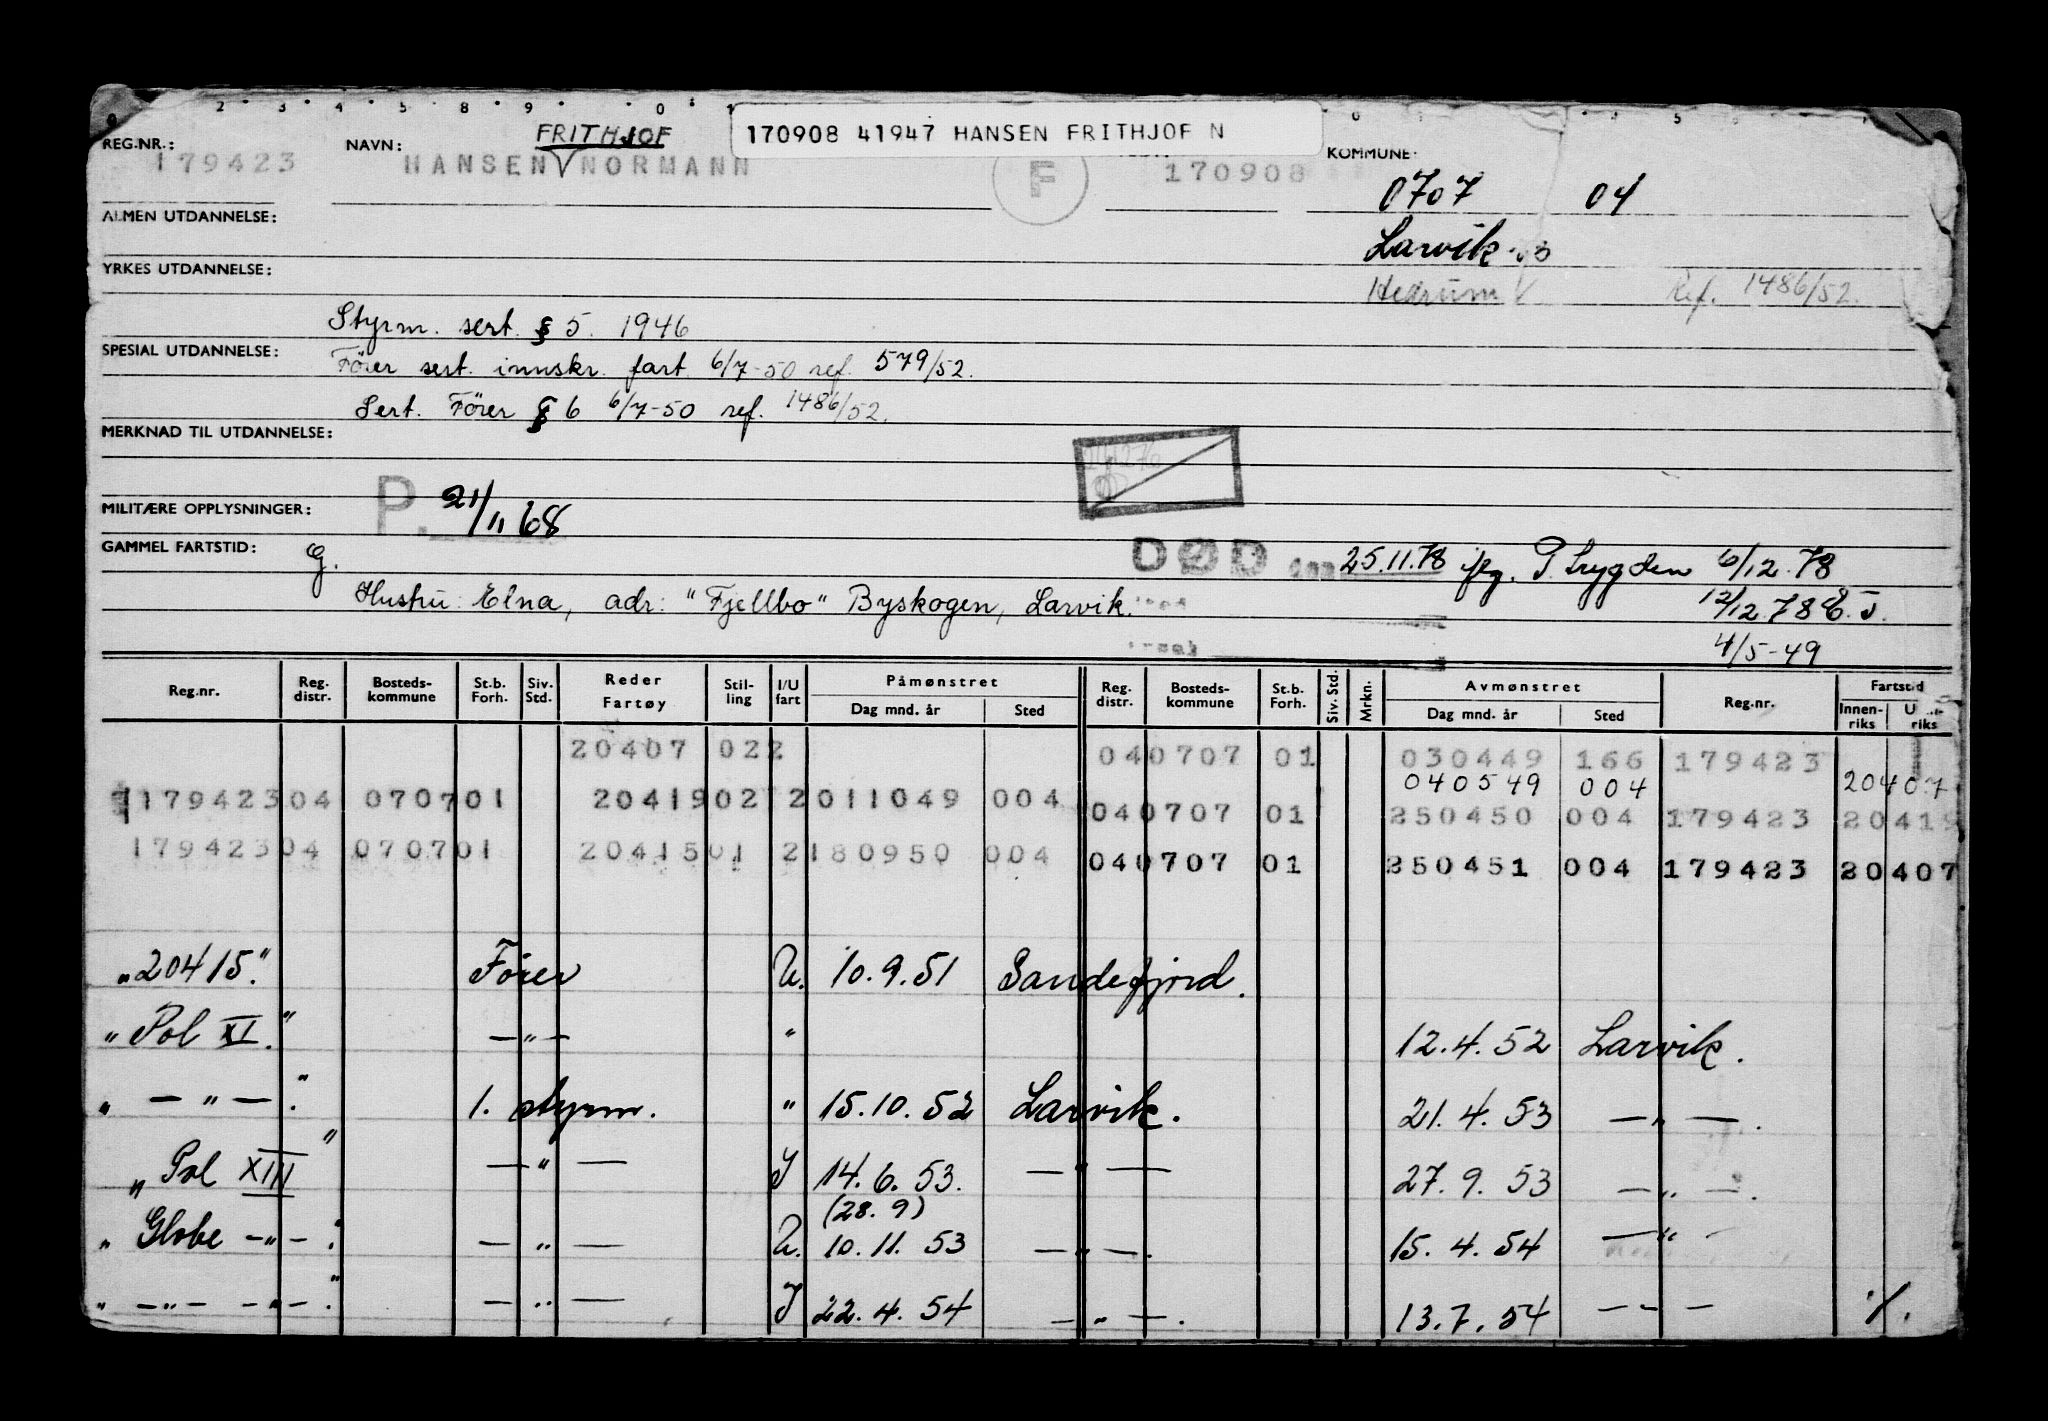 170908 41947 HANSEN FRITHJOF N
REG.NR.: 179423 NAVN: HANSEN V NORMANN FRITHJOF F 170908 KOMMUNE:
0707 04
ALMEN UTDANNELSE: Larvik
YRKES UTDANNELSE: Hedrum Ref. 1486/52.
Styrm. sert. § 5. 1946
SPESIAL UTDANNELSE: Fører sert. innskr. fart. 6/7-50 ref. 579/52.
Sert. Fører § 6 6/7-50 ref. 1486/52.
MERKNAD TIL UTDANNELSE:
MILITÆRE OPPLYSNINGER: P. 21/11 68
GAMMEL FARTSTID: G. DØD 25.11.78 ifg. P. Trygden 6/12.78
Hustru: Elna, adr: "Fjellbo" Byskogen, Larvik. 12/12.78
4/5-49
Reg.nr. Reg. distr. Bosteds-kommune St.b. Forh. Siv. Std. Reder Fartøy Stil-ling I/U fart Påmønstret Dag mnd. år Sted Reg. distr. Bosteds-kommune St.b. Forh. Siv. Std. Mrkn. Avmønstret Dag mnd. år Sted Reg.nr. Fartstid Innen-riks riks
20407 022 040707 01 030449 166 179423
040549 004 20407
179423 04 0707 01 20419 02 2 011049 004 040707 01 250450 004 179423 20419
179423 04 0707 01 20415 01 2 180950 004 040707 01 250451 004 179423 20407
"20415." Fører U. 10.9.51 Sandefjord.
"Pol XI." — " — " 12.4.52 Larvik.
" — " — ." 1. styrm. " 15.10.52 Larvik. 21.4.53 — " — .
"Pol XIII" — " — I 14.6.53. — " — 27.9.53 — " — .
(28.9)
"Globe — " — ." — " — U. 10.11.53 — " — . 15.4.54 — " —
" — " — — " — ." — " — I 22.4.54 — " — . 13.7.54 — " — ./.